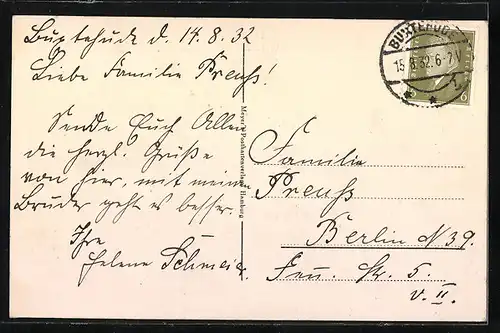 Buxtehude d. 14.8.32
Liebe Familie Preuß!
Sende Euch Allen
die herzl. Grüße
von hier, mit meinem
Bruder geht es besser.
Ihre
Helene Schmeir
Meyer's Postkartenverlag Hamburg
BUXTEHUDE
15.8.32.6-7V
6
Familie
Preuß
Berlin N 39.
Fenn. Str. 5.
v. II.